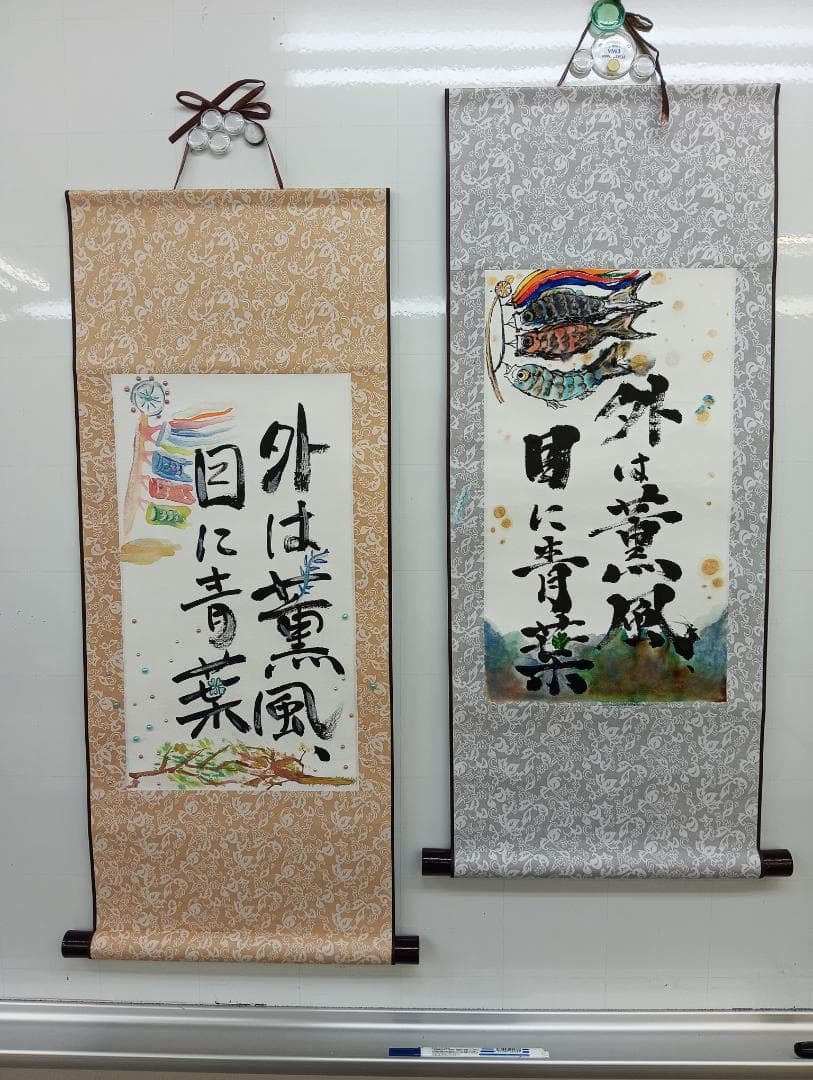 外は薫風、
目に青葉
外は薫風、
目に青葉